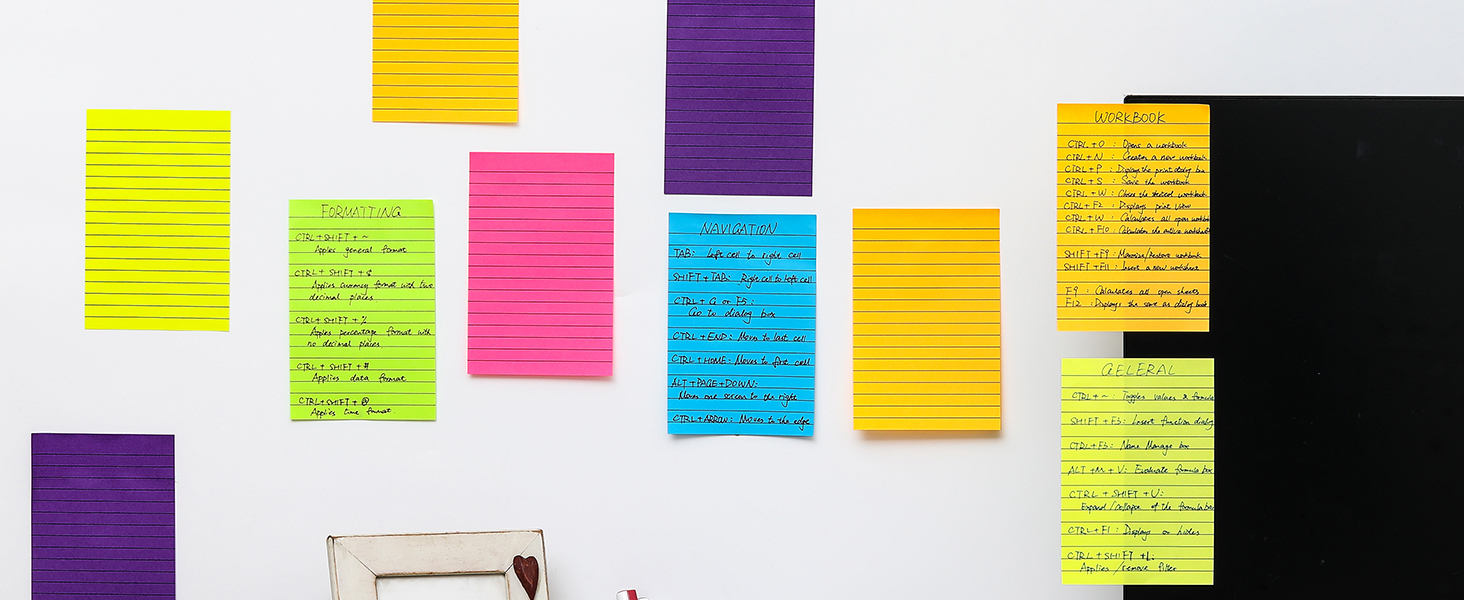 FORMATTING
CTRL + SHIFT + ~
Apples general format
CTRL + SHIFT + $
Applies currency format with two
decimal places
CTRL + SHIFT + %
Apples percentage format with
no decimal places
CTRL + SHIFT + #
Applies data format
CTRL + SHIFT + @
Applies time format.
NAVIGATION
TAB: Left cell to right cell
SHIFT + TAB: Right cell to left cell
CTRL + G or F5:
Go to dialog box
CTRL + END: Moves to last cell
CTRL + HOME: Moves to first cell
ALT + PAGE + DOWN:
Moves one screen to the right
CTRL + ARROW: Moves to the edge
WORKBOOK
CTRL + O : Opens a workbook
CTRL + N : Creates a new workbook
CTRL + P : Displays the print dialog box
CTRL + S : Save the workbook
CTRL + W : Closes the workbook
CTRL + F2 : Displays print view
CTRL + W : Calculates all open
CTRL + F10 : Calculates the active
SHIFT + F9 : workbook
SHIFT + F11 : Insert a new
F9 : Calculates all open sheets
F12 : Displays the save as dialog book
GELERAL
CTRL + ~ : Toggles values & formula
SHIFT + F3: Insert function dialog
CTRL + F3: Name Manage box
ALT + M + V: Evaluate formula box
CTRL + SHIFT + U:
Expand / collapse of the formula bar
CTRL + F1: Displays or hides
CTRL + SHIFT + L:
Applies / remove filter